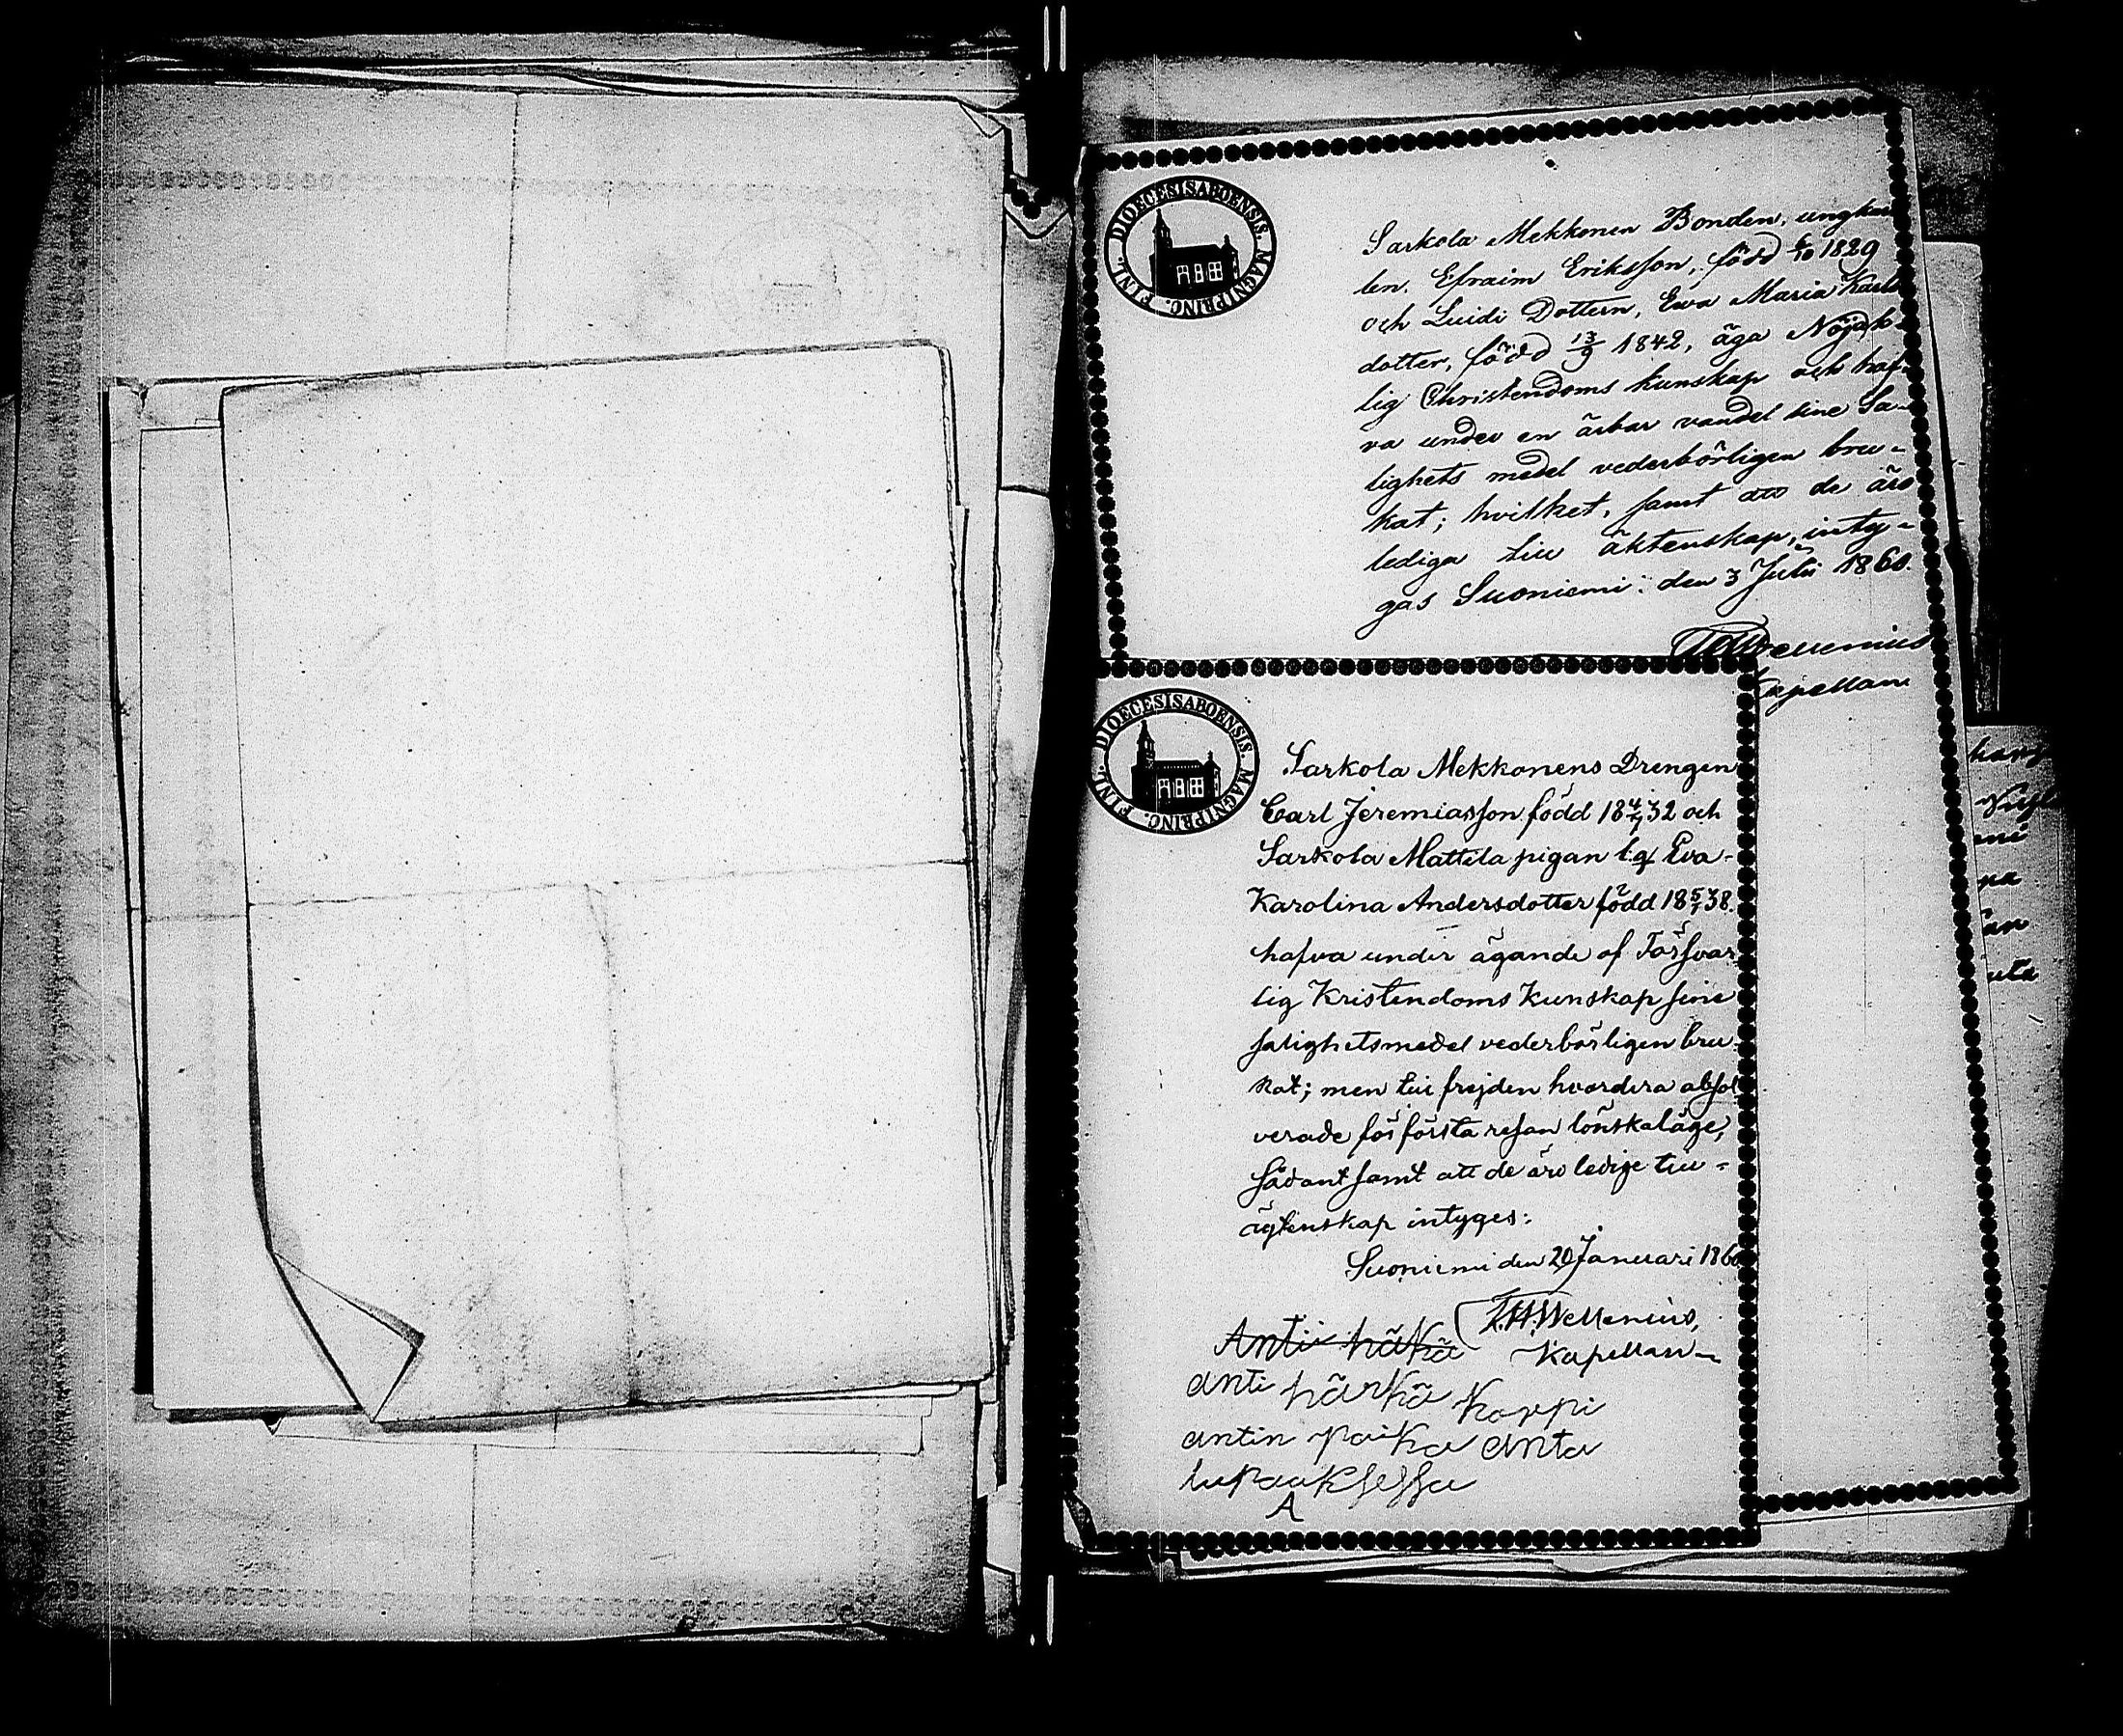 DIOECESIS ABOENSIS. MAGNI PRINC. FINL.
Sarkola Mekkonen Bonden, ungkar
len. Efraim Eriksson, född 6/10 1829
och Luidi Dottern, Ewa Maria Karls
dotter, född 13/9 1842, äga Nöjak-
lig Christendoms kunskap och haf-
va under en ärbar vandel sine Sa-
lighets medel vederbörligen bru-
kat; hvilket, samt att de äro
lediga till äktenskap, inty-
gas Suoniemi: den 3 Julii 1860.
Wellenius
Kapellan
DIOECESIS ABOENSIS. MAGNI PRINC. FINL.
Sarkola Mekkonens Drengen
Carl Jeremiasson född 18 4/7 32 och
Sarkola Mattila pigan Eva-
Karolina Andersdotter född 18 5/1 38.
hafva under ägande af Försvar-
lig Kristendoms Kunskap sine
salighetsmedel vederbörligen bru-
kat; men till frejden hvardera absol
verade för första resan lönskaläge,
sådant samt att de äro ledige till
ägtenskap intyges:
Suoniemi den 20 Januari 1860
K.H. Wellenius,
Kapellan
Anti häkä
anti härkä Korpi
antin paika anta
lupauksessa
A
hans
ni
pa
an
uta